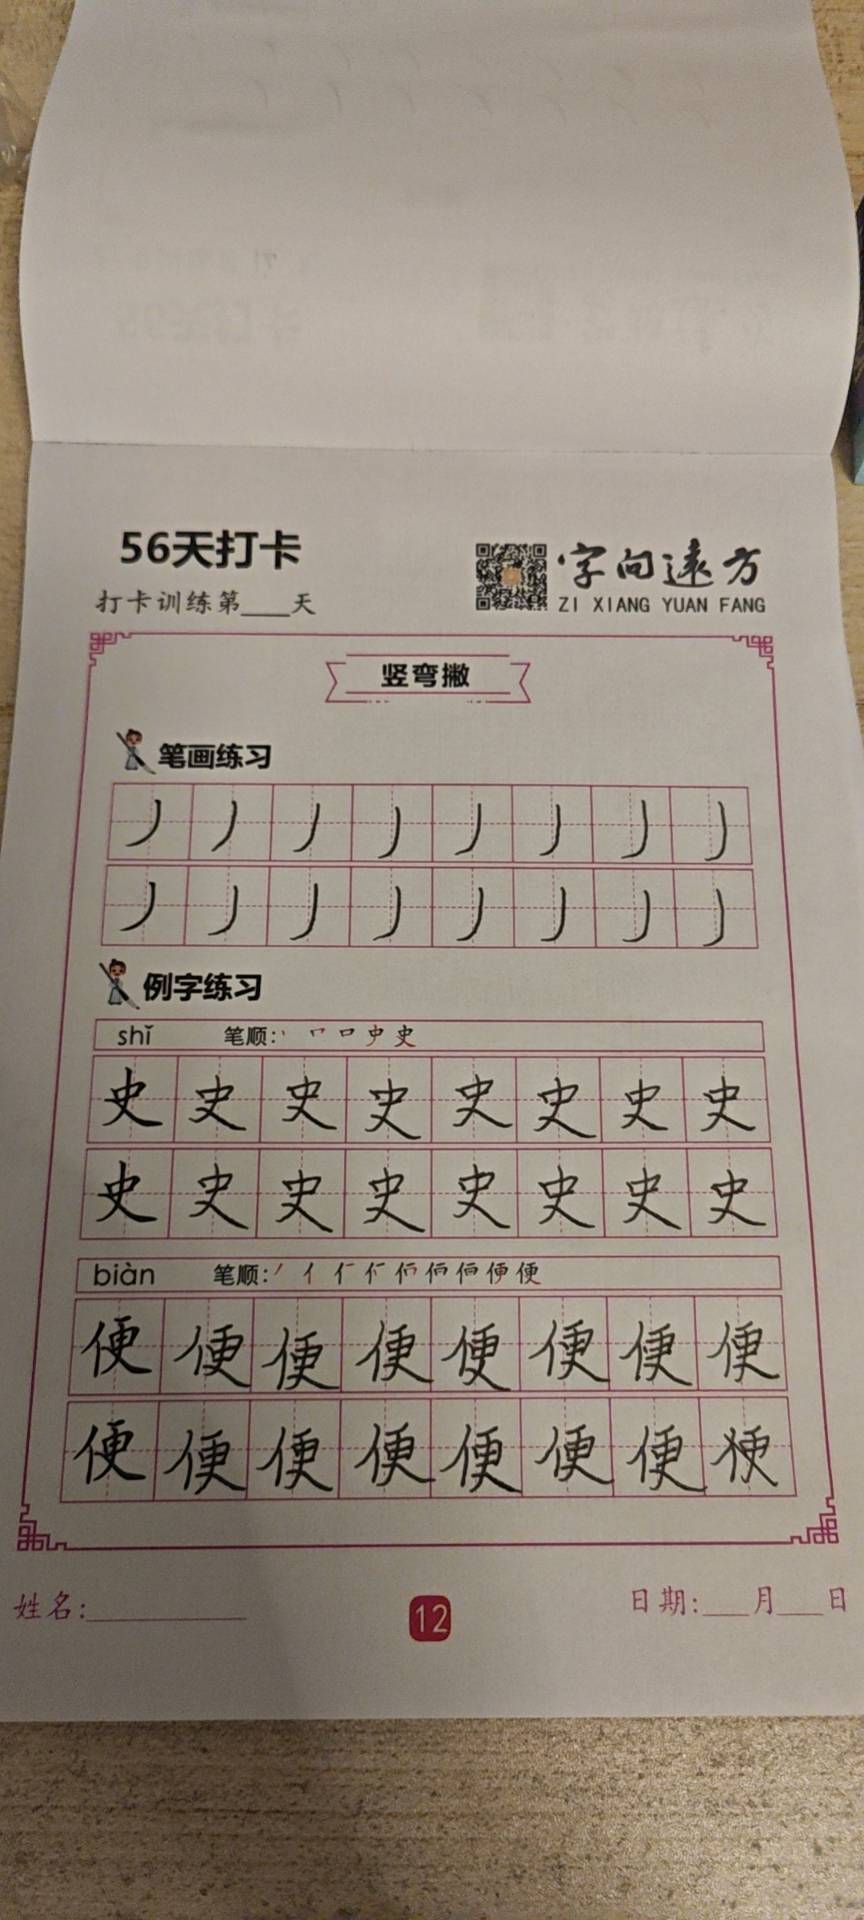 56天打卡
字向远方
打卡训练第____天
ZI XIANG YUAN FANG
竖弯撇
笔画练习
丿 丿 丿 丿 丿 丿 丿 丿
丿 丿 丿 丿 丿 丿 丿 丿
例字练习
shǐ 笔顺: 丶 𠃍 口 史 史
史 史 史 史 史 史 史 史
史 史 史 史 史 史 史 史
biàn 笔顺: 丿 亻 仁 仃 佰 佰 佰 便 便
便 便 便 便 便 便 便 便
便 便 便 便 便 便 便 便
姓名:__________
12
日期:___月___日